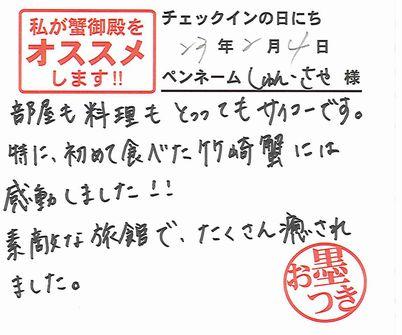 私が蟹御殿を
オススメ
します!!
チェックインの日にち
23年2月4日
ペンネーム しゅん・さや 様
部屋も料理もとってもサイコーです。
特に、初めて食べた竹崎蟹には
感動しました!!
素敵な旅館で、たくさん癒され
ました。
お墨
つき